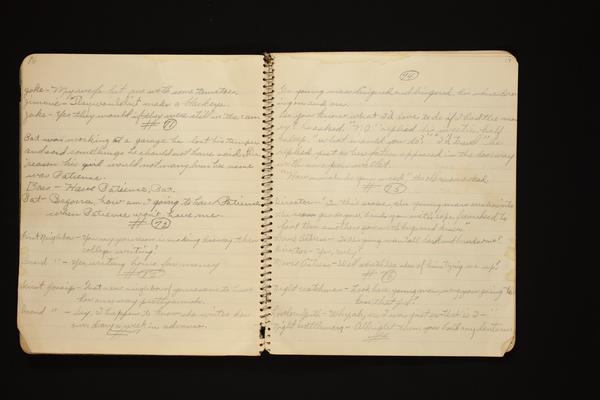 Jake - My wife hit me with some tomatoes.
Jimmie - They wouldn't make a blackeye.
Jake - Yes they would if they were still in the can
# 71
Pat was working at a garage he lost his temper
and said somethings he should not have said, the
reason his girl would not marry him her name
was Patience.
Boss - Have Patience, Pat.
Pat - Begorra, how am I going to have Patience
when Patience won't have me.
# 72
First Neighbor - You say your son is making his way thru
college writing?
Second " - Yes, writing home for money
# 73
First Gossip - That new neighbor of yours seems to have
her own way pretty much.
Second " - Say, I happen to know she writes her
own diary a week in advance.
74
The young man lingered and lingered, her voice
ing on and on.
Do you know what I'd love to do if I had the mon
ey? he asked. "No." replied his sweetie, half
asleep. "What would you do?" "I'd travel" he
replied, just as her father appeared in the doorway
"How much do you want?" the old man asked
# 75
Director - In this scene, the young man rushes into
the room, grabs your hands you with rope from head to
foot then smothers you with hugs and kisses"
Movie Actress - Is the young man tall dark and handsome?
Director - Yes, why?
Movie Actress - Well what's the idea of him tying me up?
# 76
Night watchman - Look here young man, are you going to
kiss that girl?
Night watchman - Allright then you hold my lantern